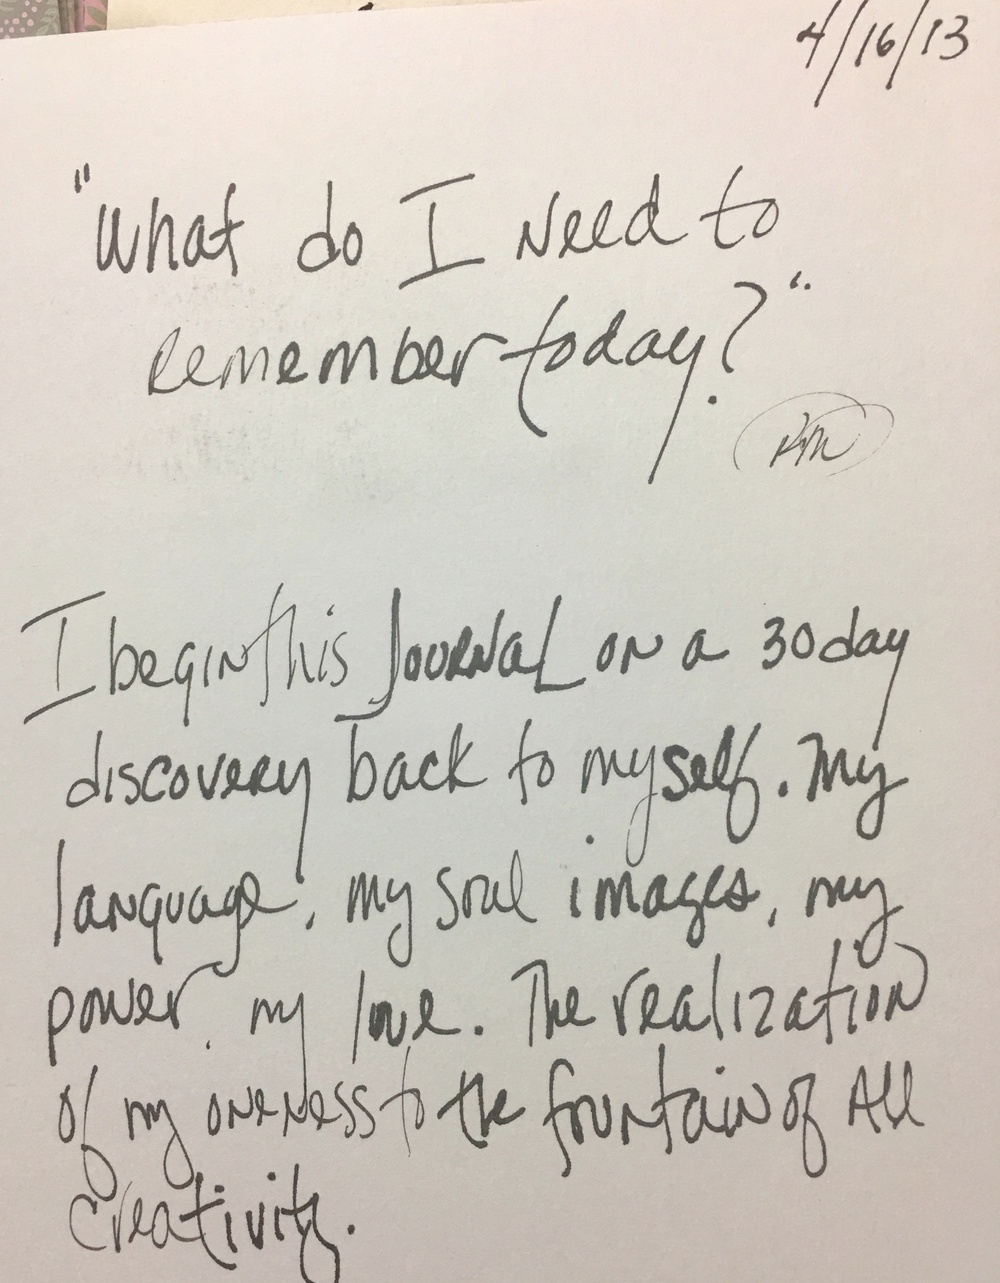 4/16/13
"What do I Need to
Remember today?"
I begin this Journal on a 30 day
discovery back to myself. My
language, my soul images, my
power, my love. The realization
of my oneness to the fountain of All
Creativity.